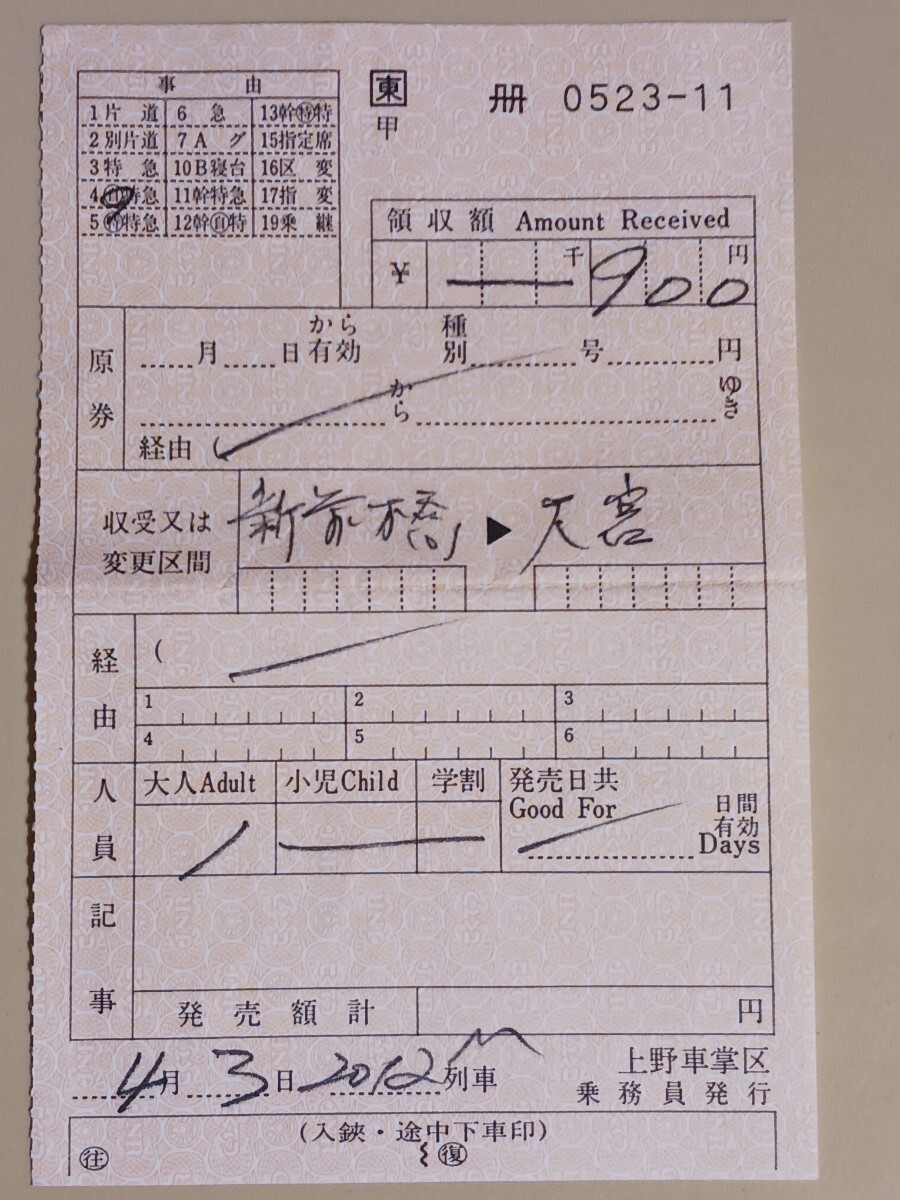 事由
1片道 6急 13幹㊕特
2別片道 7Aグ 15指定席
3特急 10B寝台 16区変
特急 11幹特急 17指変
5㊕特急 12幹㊐特 19乗継
東
甲
冊 0523-11
領収額 Amount Received
¥ 千 900 円
原券
月 日 から有効 種別 号 円
から ゆき
経由 (
収受又は変更区間
新前橋 ▶ 大宮
経由
(
1 2 3
4 5 6
人員
大人Adult 小児Child 学割 発売日共 Good For 日間有効 Days
1
記事
発売額計 円
4月 3日 2012M列車
上野車掌区
乗務員発行
(入鋏・途中下車印)
往 復